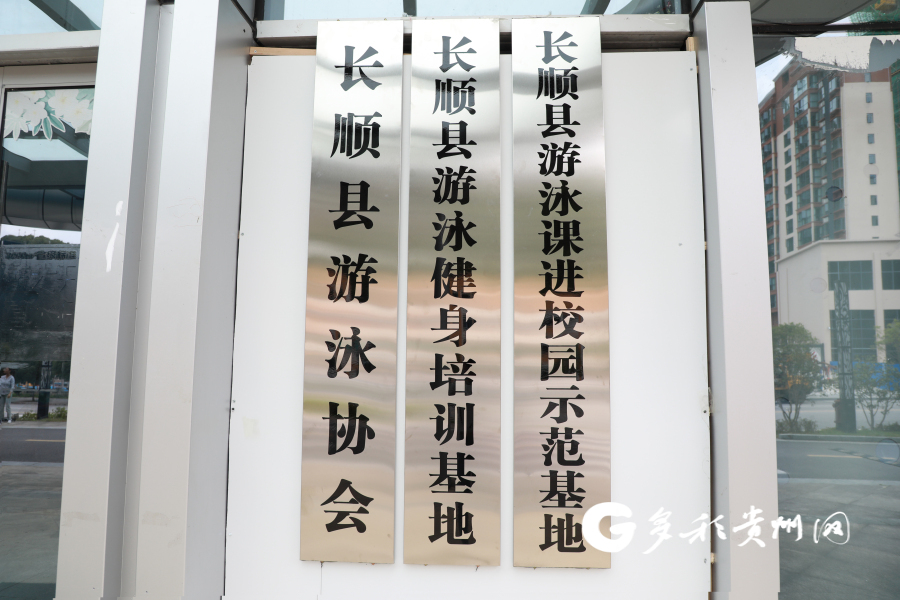 长顺县游泳协会
长顺县游泳健身培训基地
长顺县游泳课进校园示范基地
多彩贵州网